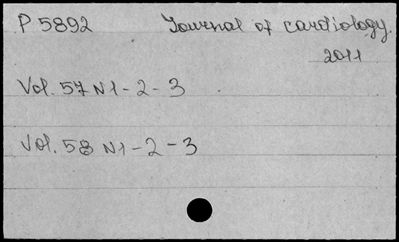 P 5892 Journal of cardiology.
2011
Vol. 57 N1-2-3
Vol. 58 N1-2-3